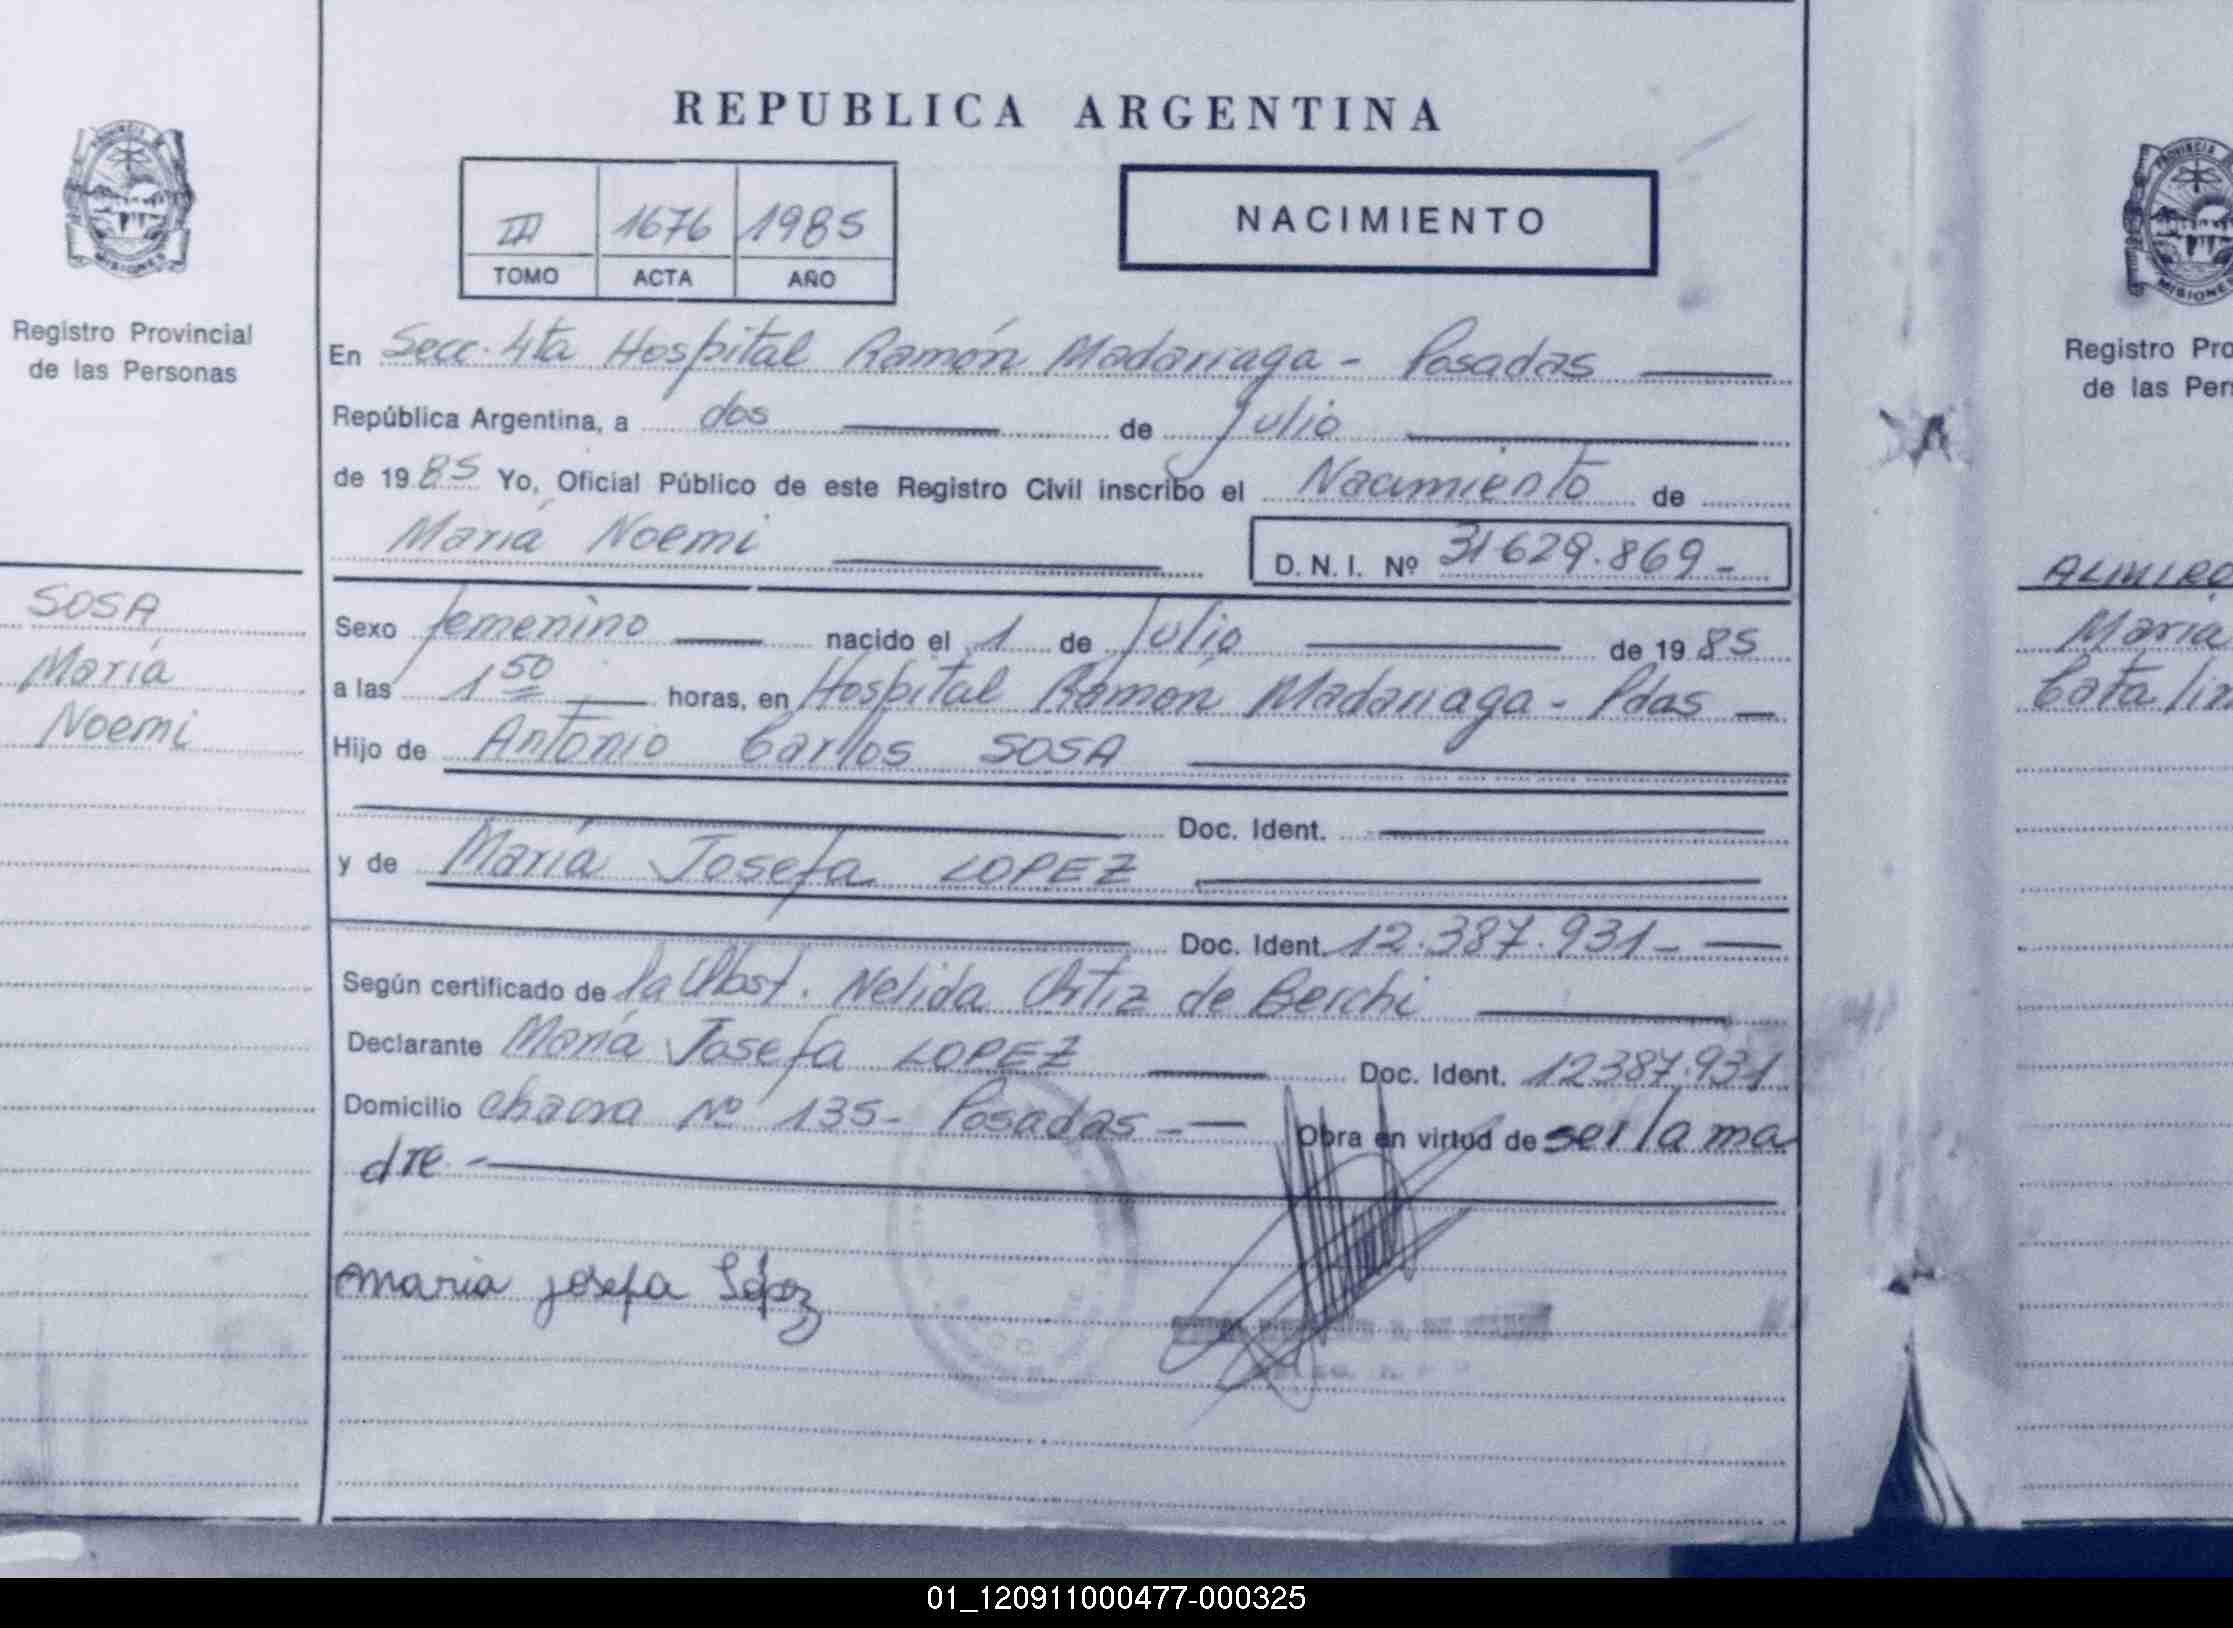 REPUBLICA ARGENTINA
III 1676 1985
TOMO ACTA AÑO
NACIMIENTO
PROVINCIA
MISIONES
Registro Provincial
de las Personas
SOSA
María
Noemi
En Secc. 4ta Hospital Ramón Madariaga - Posadas
República Argentina, a dos de Julio
de 1985 Yo, Oficial Público de este Registro Civil inscribo el Nacimiento de
María Noemi D. N. I. Nº 31.629.869-
Sexo femenino nacido el 1 de Julio de 1985
a las 1 50 horas, en Hospital Ramón Madariaga - Pdas
Hijo de Antonio Carlos SOSA
Doc. Ident.
y de María Josefa LOPEZ
Doc. Ident. 12.387.931-
Según certificado de la Obst. Nelida Ortiz de Berchi
Declarante María Josefa LOPEZ Doc. Ident. 12387.931
Domicilio chacra Nº 135- Posadas - Obra en virtud de ser la ma
dre -
maria josefa López
PROVINCIA
MISIONES
Registro Pro
de las Per
ALMIRO
María
Catalin
01_120911000477-000325